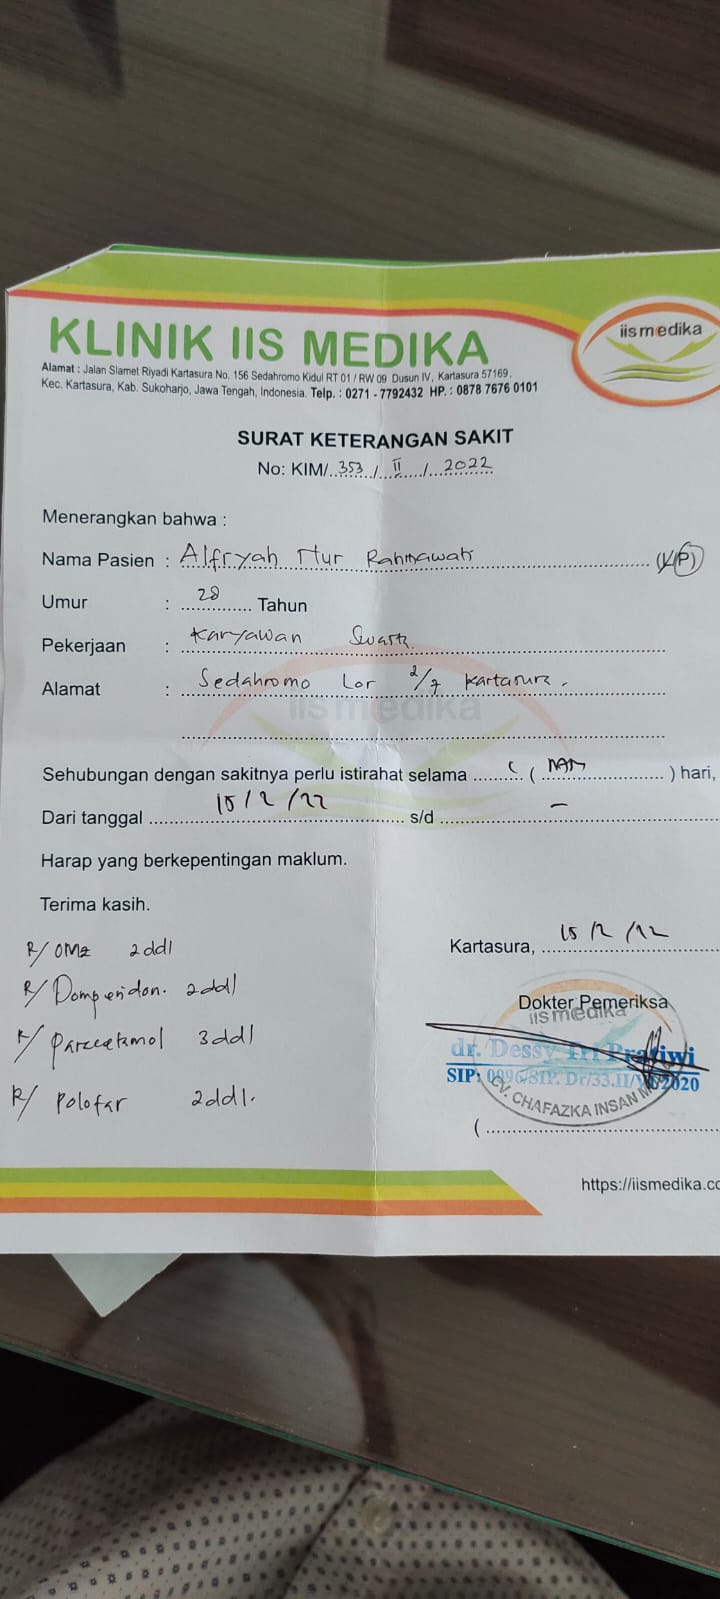 KLINIK IIS MEDIKA
iismedika
Alamat : Jalan Slamet Riyadi Kartasura No. 156 Sedahromo Kidul RT 01 / RW 09 Dusun IV, Kartasura 57169,
Kec. Kartasura, Kab. Sukoharjo, Jawa Tengah, Indonesia. Telp. : 0271 - 7792432 HP. : 0878 7676 0101
SURAT KETERANGAN SAKIT
No: KIM/ 353 / II / 2022
Menerangkan bahwa :
Nama Pasien : Alfryah Nur Rahmawati (L/P)
Umur : 28 Tahun
Pekerjaan : Karyawan Swasta
Alamat : Sedahromo Lor 2/7 Kartasura.
iismedika
Sehubungan dengan sakitnya perlu istirahat selama ( ) hari,
Dari tanggal 15/2/22 s/d -
Harap yang berkepentingan maklum.
Terima kasih.
Kartasura, 15/2/22
R/ OMZ 2dd1
R/ Domperidon. 2dd1
R/ Paracetamol 3dd1
R/ Polofar 2dd1.
Dokter Pemeriksa
iismedika
dr. Dessy Tri Pratiwi
SIP: 0096/SIP. Dr/33.11/ /2020
CV. CHAFAZKA INSAN
(
https://iismedika.co